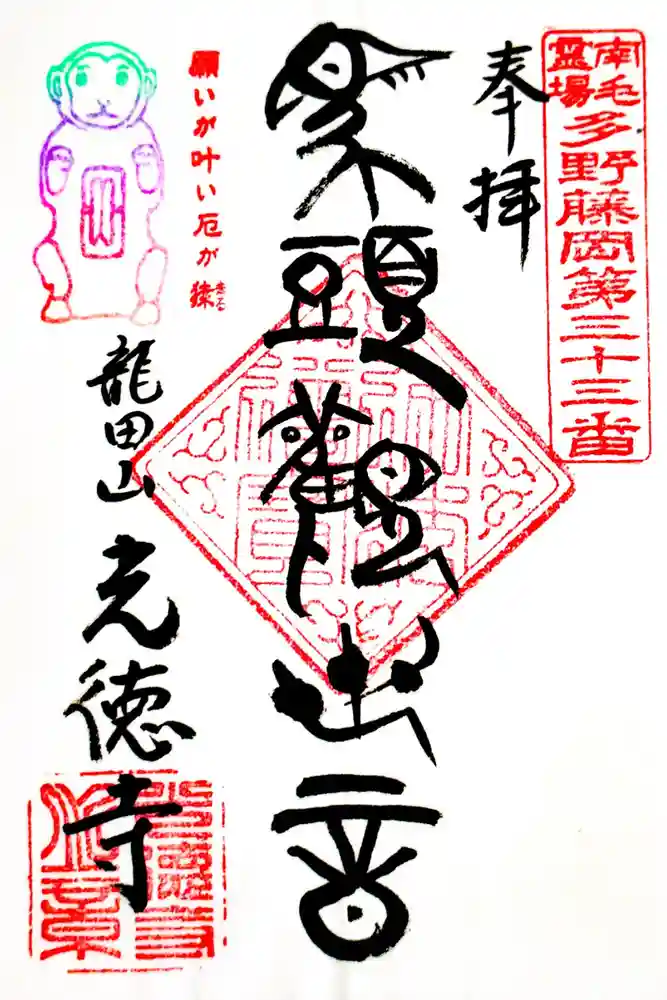 南毛
霊場
多野藤岡第三十三番
奉拝
馬頭觀世音
願いが叶い厄が猿
さる
龍田山
光徳寺